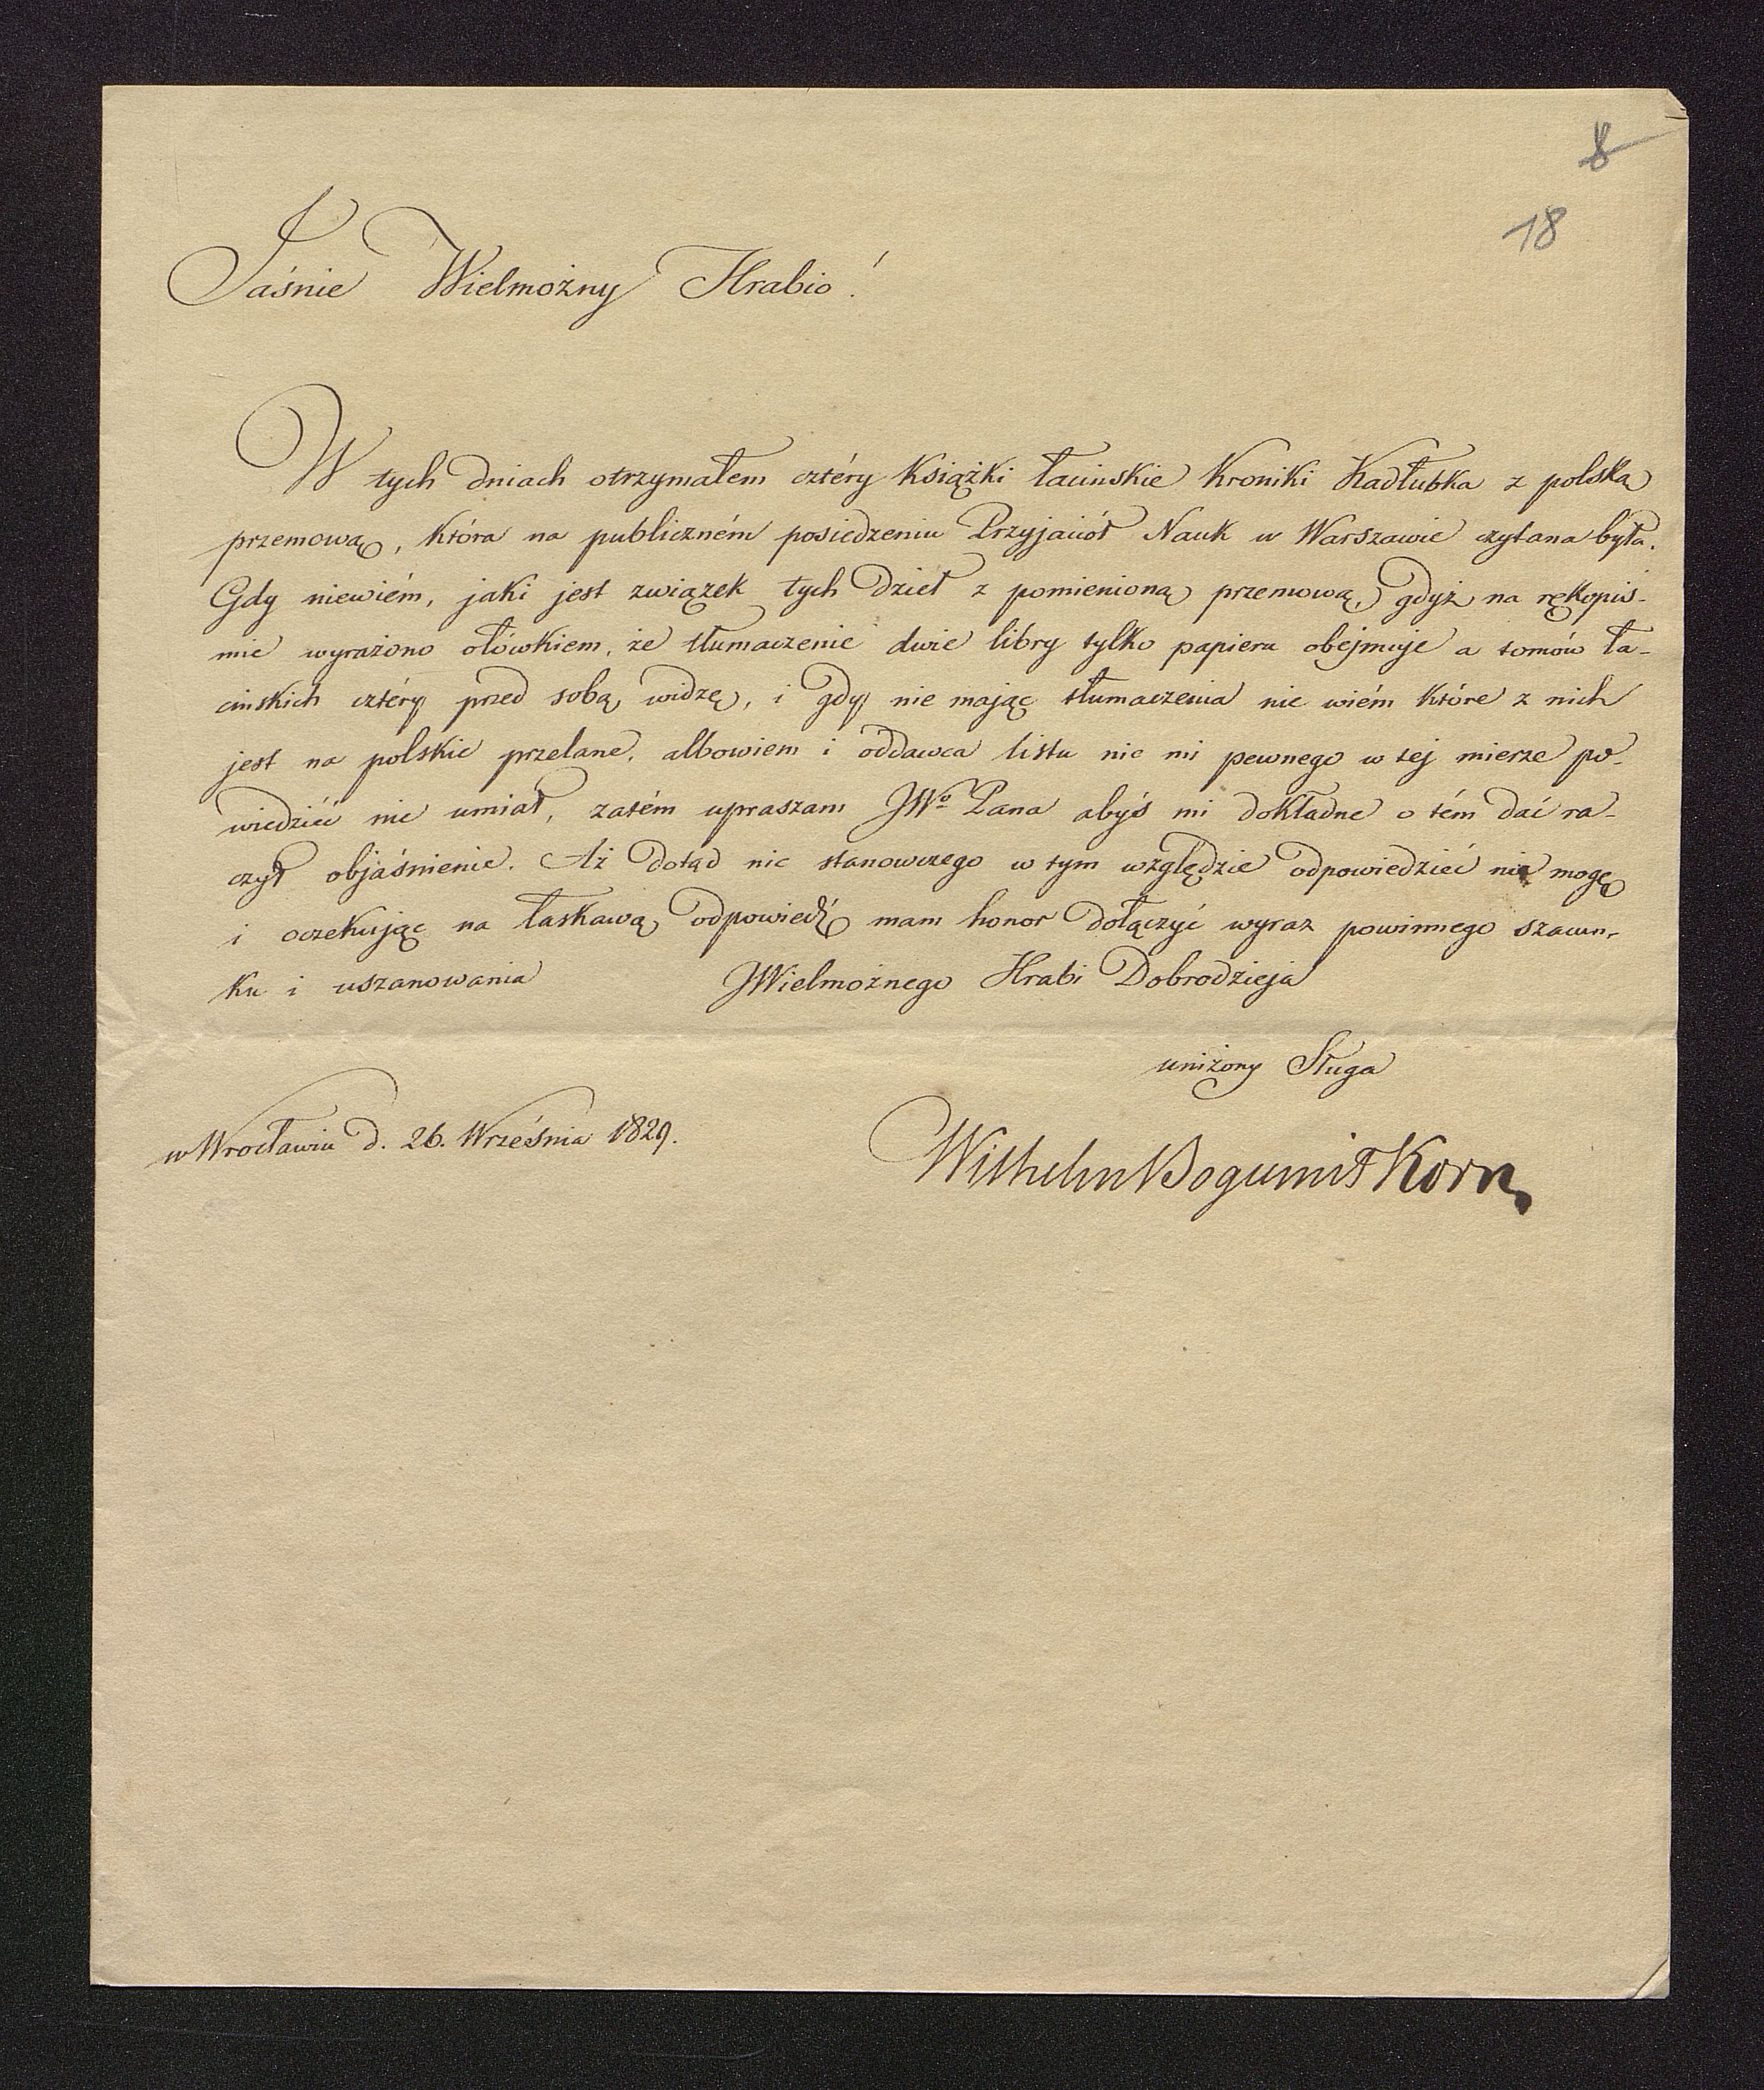 8
18
Jaśnie Wielmożny Hrabio!
W tych dniach otrzymałem cztéry Książki łacinskie Kroniki Kadłubka z polską
przemową, która na publiczném posiedzeniu Przyjaciół Nauk w Warszawie czytana była.
Gdy niewiém, jaki jest związek tych dzieł z pomienioną przemową, gdyż na rękopiś-
mie wyrażono ołówkiem, że tłumaczenie dwie libry tylko papieru obejmuje a tomów ła-
cinskich cztéry przed sobą widzę, i gdy nie mając tłumaczenia nie wiém które z nich
jest na polskie przelane, albowiem i oddawca listu nic mi pewnego w tej mierze po-
wiedzićć nie umiał, zatém upraszam JWo Pana abyś mi dokładne o tém dać ra-
czył objaśnienie. Aż dotąd nic stanowczego w tym względzie odpowiedzieć nie mogę
i oczekując na łaskawą odpowiedź mam honor dołączyć wyraz powinnego szacun-
ku i uszanowania JWielmożnego Hrabi Dobrodzieja
uniżony Sługa
w Wrocławiu d. 26. Września 1829.
Wilhelm Bogumił Korn